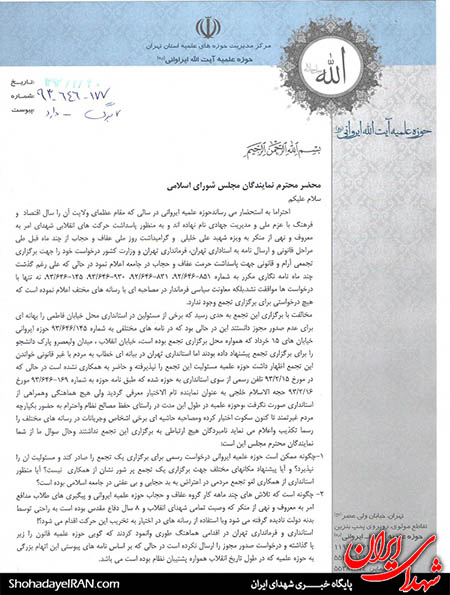 مرکز مدیریت حوزه های علمیه استان تهران
حوزه علمیه آیت الله ایروانی (ره)
الله
حوزه علمیه آیت الله ایروانی (ره)
تاریخ:
شماره: ۹۳-۶۴۶-۱۷۷
پیوست: ۲ برگ - دارد
بسم الله الرحمن الرحیم
محضر محترم نمایندگان مجلس شورای اسلامی
سلام علیکم
احتراما به استحضار می رساندحوزه علمیه ایروانی در سالی که مقام عظمای ولایت آن را سال اقتصاد و
فرهنگ با عزم ملی و مدیریت جهادی نام نهاده اند و به منظور پاسداشت حرکت های انقلابی شهدای امر به
معروف و نهی از منکر به ویژه شهید علی خلیلی و گرامیداشت روز ملی عفاف و حجاب از چند ماه قبل طی
مراحل قانونی و ارسال نامه به استانداری تهران، فرمانداری تهران و وزارت کشور درخواست خود را جهت برگزاری
تجمعی آرام و قانونی جهت پاسداشت حرمت عفاف و حجاب در جامعه اعلام نمود در حالی که علی رغم گذشت
چند ماه نامه نگاری مکرر به شماره ۸۵۱-۹۲/۶۴۶، ۸۳۱-۹۲/۶۴۶، ۹۳۰-۹۲/۶۴۶، ۱۴۵-۹۳/۶۴۶ نه تنها با
درخواست ها موافقت نشد،بلکه معاونت سیاسی فرماندار در مصاحبه ای با رسانه های مختلف اعلام نموده است که
هیچ درخواستی برای برگزاری تجمع وجود ندارد.
مخالفت با برگزاری این تجمع به حدی رسید که برخی از مسئولین در استانداری محل خیابان فاطمی را بهانه ای
برای عدم صدور مجوز دانستند این در حالی بود که در نامه های مختلفی به شماره ۹۳/۶۴۶/۱۴۵ حوزه ایروانی
خیابان های ۱۵ خرداد که همواره محل برگزاری تجمع بوده است، خیابان انقلاب ، میدان ولیعصرو پارک دانشجو
را برای برگزاری تجمع پیشنهاد داده بودند اما استانداری تهران در بیانه ای خطاب به مردم با غیر قانونی خواندن
این تجمع اظهار داشت حوزه علمیه مسئولیت این تجمع را نپذیرفته و حاضر به همکاری نشده است در حالی که
در مورخ ۹۳/۲/۱۵ تلفن رسمی از سوی استانداری به حوزه شده که طبق نامه حوزه به شماره ۱۶۹-۹۳/۶۴۶ مورخ
۹۳/۲/۱۶ حجه الاسلام خلجی به عنوان نماینده تام الاختیار معرفی گردید ولی هیچ هماهنگی وهمراهی از
استانداری صورت نگرفت ،وحوزه علمیه در طول این مدت در راستای حفظ مصالح نظام واحترام به حضور یکپارچه
مردم غیرتمند تا کنون سکوت اختیار کرده ومصاحبه حاشیه ای برخی اشخاص وجریانات در رسانه های مختلف را
رسما تکذیب واعلام می نماید نامبردگان هیچ ارتباطی به برگزاری این تجمع نداشتند وحال سوال ما از شما
نمایندگان محترم مجلس این است:
۱-چگونه ممکن است حوزه علمیه ایروانی درخواست رسمی برای برگزاری یک تجمع را صادر کند و مسئولیت ان را
نپذیرد؟ و آیا پیشنهاد مکانهای مختلف جهت برگزاری یک تجمع پر شور نشان از همکاری نیست؟ آیا منظور
استانداری از همکاری لغو تجمع مردمی در اعتراض به بد حجابی و بی عفتی در جامعه اسلامی بوده است؟
۲- چگونه است که تلاش های چند ماهه کار گروه عفاف و حجاب حوزه علمیه ایروانی و پیگیری های طلاب مدافع
امر به معروف و نهی از منکر که وصیت تمامی شهدای انقلاب و ۸ سال دفاع مقدس بوده است به راحتی توسط
بدنه دولت نادیده گرفته می شود وبا استفاده از رسانه های در اختیار به تخریب این حرکت اقدام می شود؟!
استانداری و فرمانداری تهران در اقدامی هماهنگ طوری وانمود کردند که گویی حوزه علمیه قانون را زیر
پا گذاشته و درخواست صدور مجوز را ارسال نکرده است در حالی که بر اساس نامه های پیوستی این اتهام بزرگی
به حوزه علمیه که در طول تاریخ انقلاب همواره پشتیبان نظام بوده است می باشد.
تهران، خیابان ولی عصر (عج)
تقاطع مولوی، روبروی پمپ بنزین
حوزه علمیه آیت الله ایروانی (ره)
شهدای ایران
ShohadayeIRAN.com
پایگاه خبـری شهدای ایران